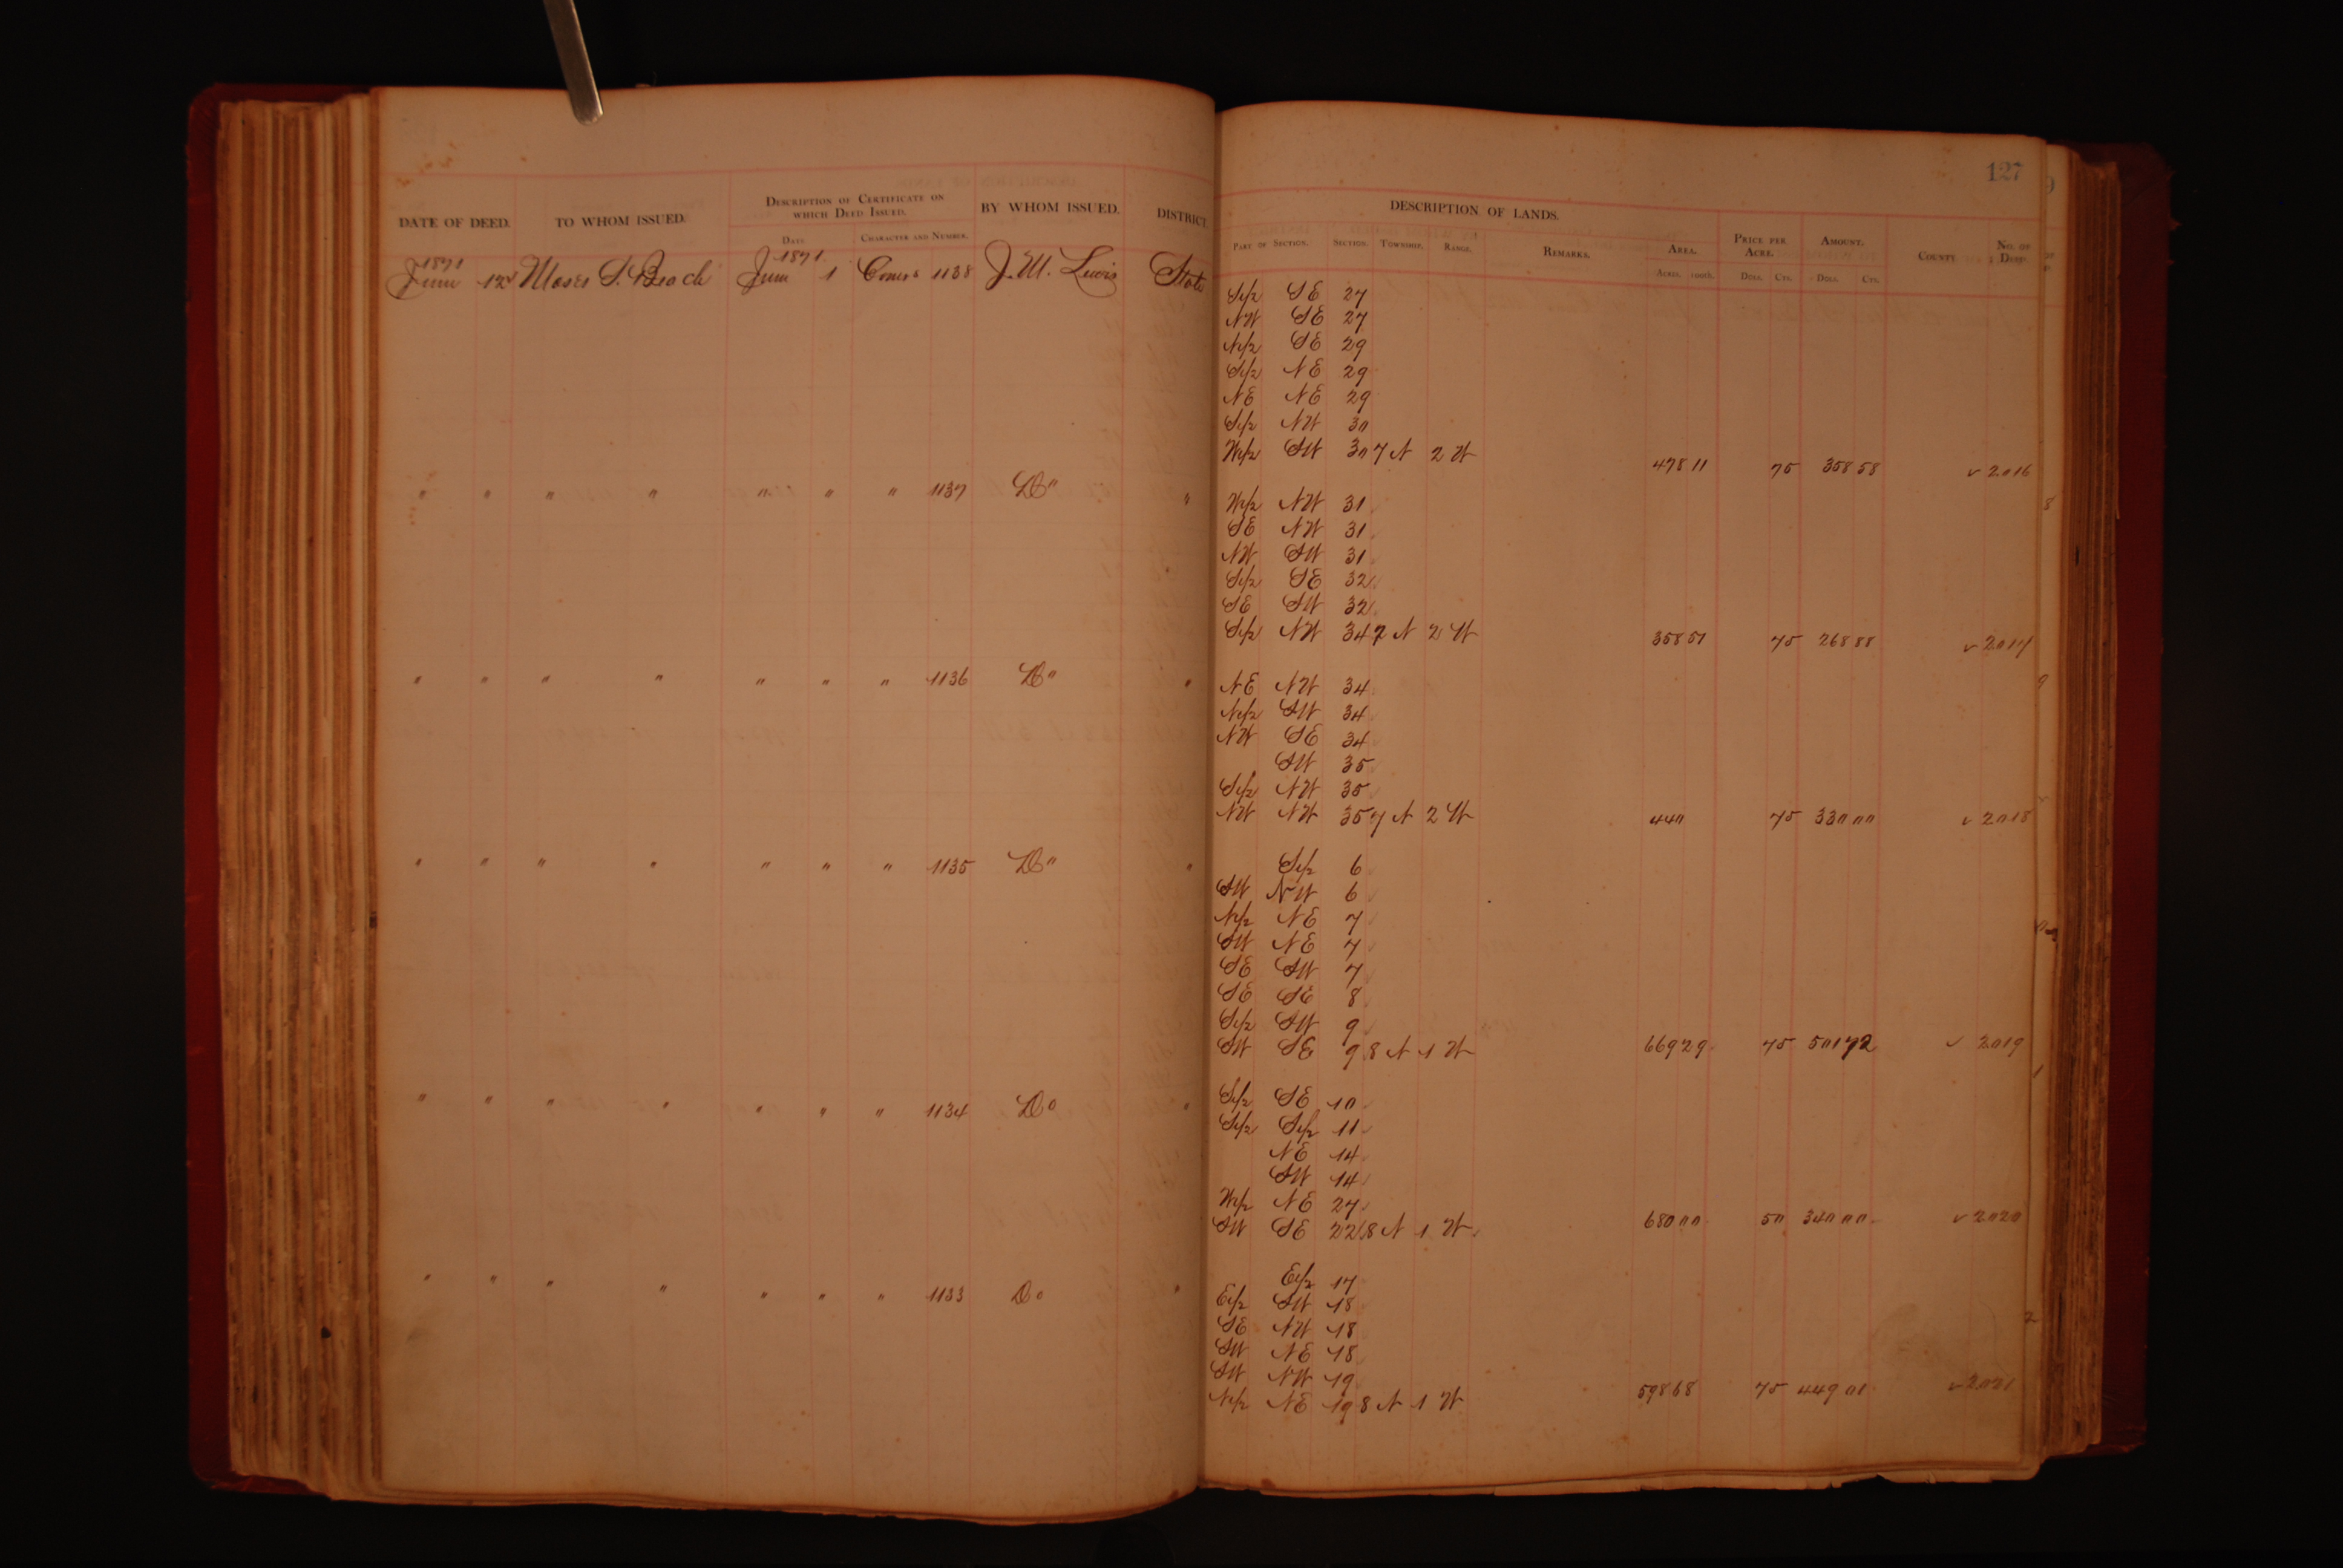 127
DATE OF DEED. TO WHOM ISSUED. DESCRIPTION OF CERTIFICATE ON WHICH DEED ISSUED. BY WHOM ISSUED. DISTRICT. DESCRIPTION OF LANDS. PRICE PER ACRE. AMOUNT. COUNTY NO. OF DEED.
DATE CHARACTER AND NUMBER. PART OF SECTION. SECTION. TOWNSHIP. RANGE. REMARKS. AREA.
ACRES. 100th. DOLS. CTS. DOLS. CTS.
1871 1871
June 12 Moses S. Beach June 1 1138 J. M. Lewis State S1/2 SE 27
NW SE 27
N1/2 SE 29
S1/2 NE 29
NE NE 29
S1/2 NW 30
W1/2 SW 30 7 N 2 W 478 11 75 358 58 ✓ 2016
" " " " " " " 1137 Do " W1/2 NW 31
SE NW 31
NW SW 31
S1/2 SE 32
SE SW 32
S1/2 NW 34 7 N 2 W 358 51 75 268 88 ✓ 2017
" " " " " " " 1136 Do " NE NW 34
N1/2 SW 34
NW SE 34
SW 35
S1/2 NW 35
NW NW 35 7 N 2 W 440 75 330 00 ✓ 2018
" " " " " " " 1135 Do " S1/2 6
SW NW 6
N1/2 NE 7
SW NE 7
SE SW 7
SE SE 8
S1/2 SW 9
SW SE 9 8 N 1 W 669 29 75 501 72 ✓ 2019
" " " " " " " 1134 Do " S1/2 SE 10
S1/2 S1/2 11
NE 14
SW 14
W1/2 NE 27
SW SE 22 8 N 1 W 680 00 50 340 00 ✓ 2020
" " " " " " " 1133 Do " E1/2 17
E1/2 SW 18
SE NW 18
SW NE 18
SW NW 19
N1/2 NE 19 8 N 1 W 598 68 75 449 01 ✓ 2021